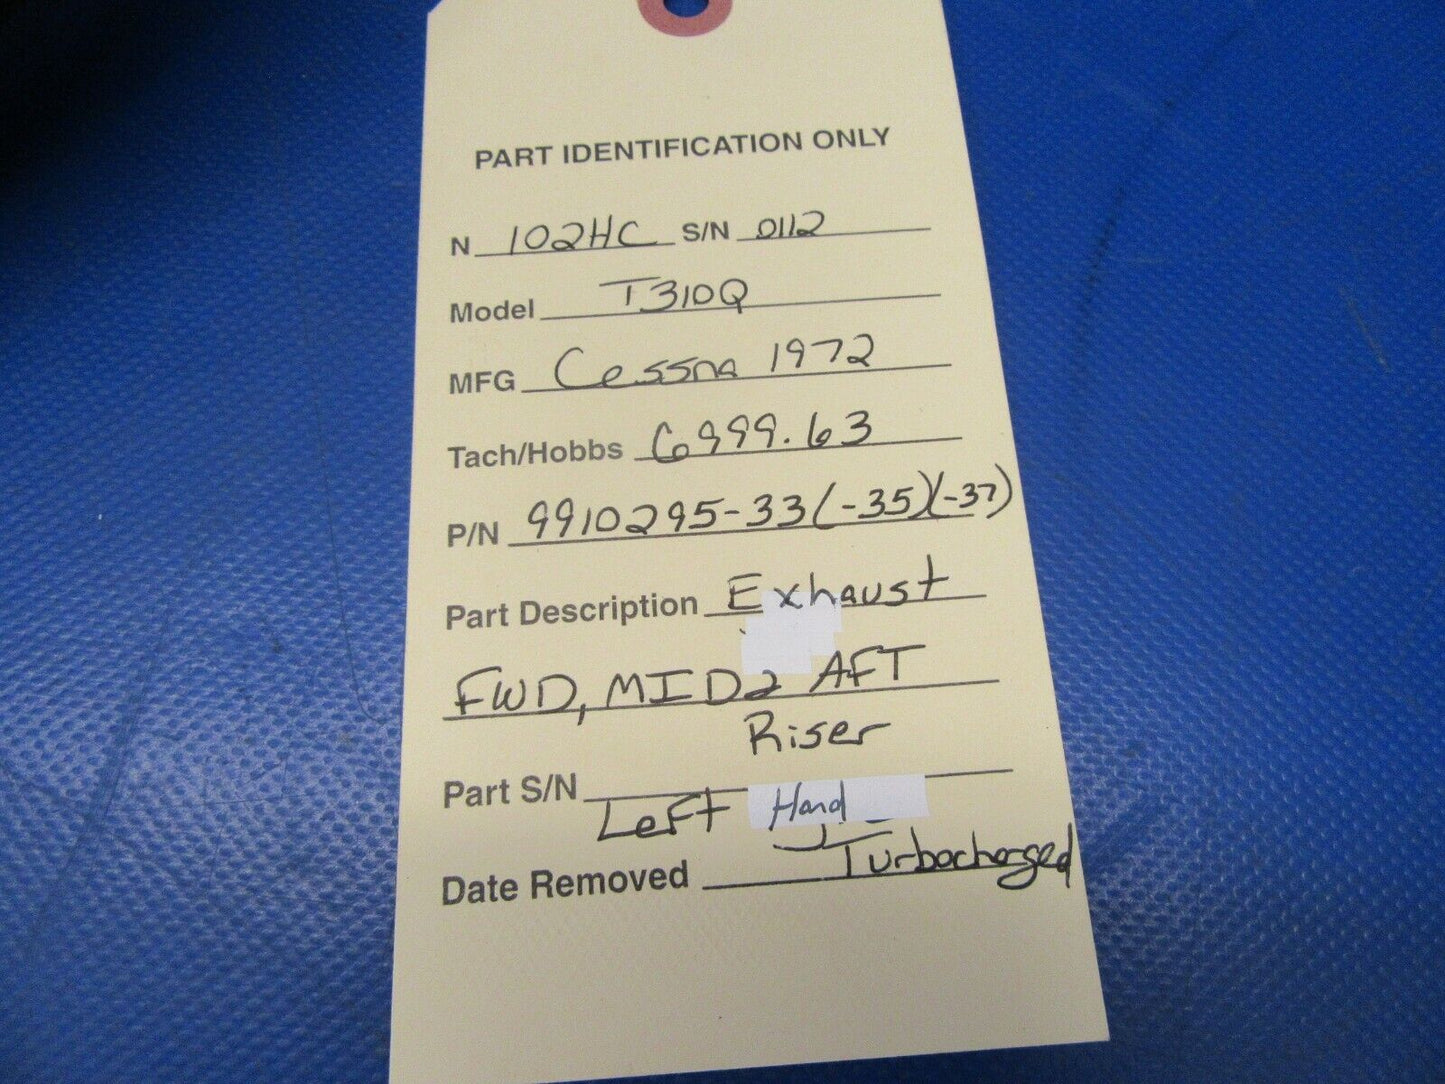 PART IDENTIFICATION ONLY
N 102HC S/N 0112
Model T310Q
MFG Cessna 1972
Tach/Hobbs 6999.63
P/N 9910295-33(-35)(-37)
Part Description Exhaust
FWD, MID2 AFT
Riser
Part S/N
Left Hand
Turbocharged
Date Removed